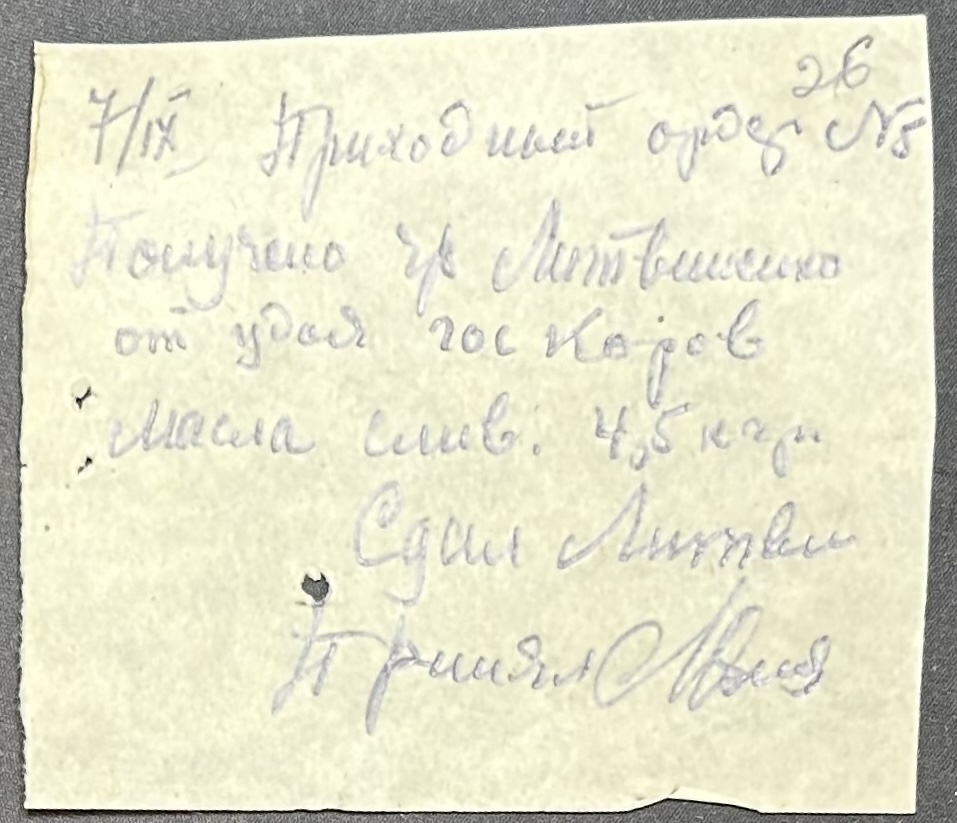 26
7/IX Приходный ордер №5
Получено гр Литвиненко
от удоя гос Коров
Масла слив. 4,5 кгр
Сдал Литвин
Принял